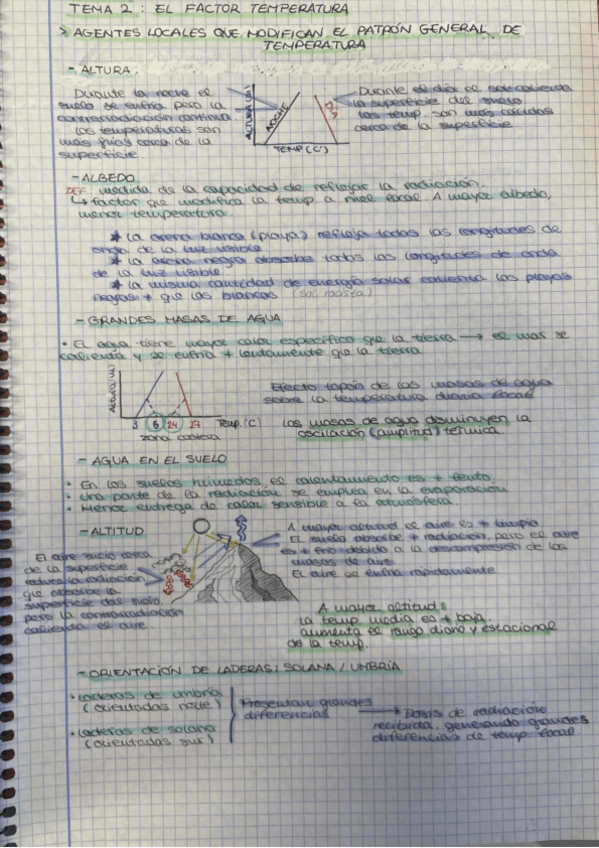 TEMA 2 : EL FACTOR TEMPERATURA
> AGENTES LOCALES QUE MODIFICAN EL PATRÓN GENERAL DE
TEMPERATURA
- ALTURA
Durante la noche el
suelo se enfría pero la
contrarradiación continúa.
Las temperaturas son
más frías cerca de la
superficie
ALTURA (m)
NOCHE
DÍA
TEMP (Cº)
Durante el día el sol calienta
la superficie del suelo
las temp. son más cálidas
cerca de la superficie
- ALBEDO
DEF: medida de la capacidad de reflejar la radiación.
↳ factor que modifica la temp. a nivel local. A mayor albedo,
menor temperatura.
* La arena blanca (playa) refleja todas las longitudes de
onda de la luz visible
* La arena negra absorbe todas las longitudes de onda
de la luz visible.
* La misma cantidad de energía solar calienta las playas
negras + que las blancas
- GRANDES MASAS DE AGUA
• El agua tiene mayor calor específico que la tierra → el mar se
calienta y se enfría + lentamente que la tierra
Altura (m)
3 6 24 27 Temp. (C)
zona costera
Efecto tapón de las masas de agua
sobre la temperatura diurna local
Las masas de agua disminuyen la
oscilación (amplitud) térmica
- AGUA EN EL SUELO
• En los suelos húmedos el calentamiento es + lento.
• Una parte de la radiación se emplea en la evaporación
• Menor entrega de calor sensible a la atmósfera
- ALTITUD
El aire sucio cerca
de la superficie
reduce la radiación
que absorbe la
superficie del suelo
pero la contrarradiación
calienta el aire
A mayor altitud el aire es + limpio
El suelo absorbe + radiación, pero el aire
es + frío debido a la descompresión de las
masas de aire.
El aire se enfría rápidamente
A mayor altitud:
la temp media es + baja.
aumenta el rango diario y estacional
de la temp.
- ORIENTACIÓN DE LADERAS: SOLANA / UMBRÍA
• Laderas de umbría
(orientadas norte)
• Laderas de solana
(orientadas sur)
Presentan grandes
diferencias
→ Dosis de radiación
recibida, generando grandes
diferencias de temp. local